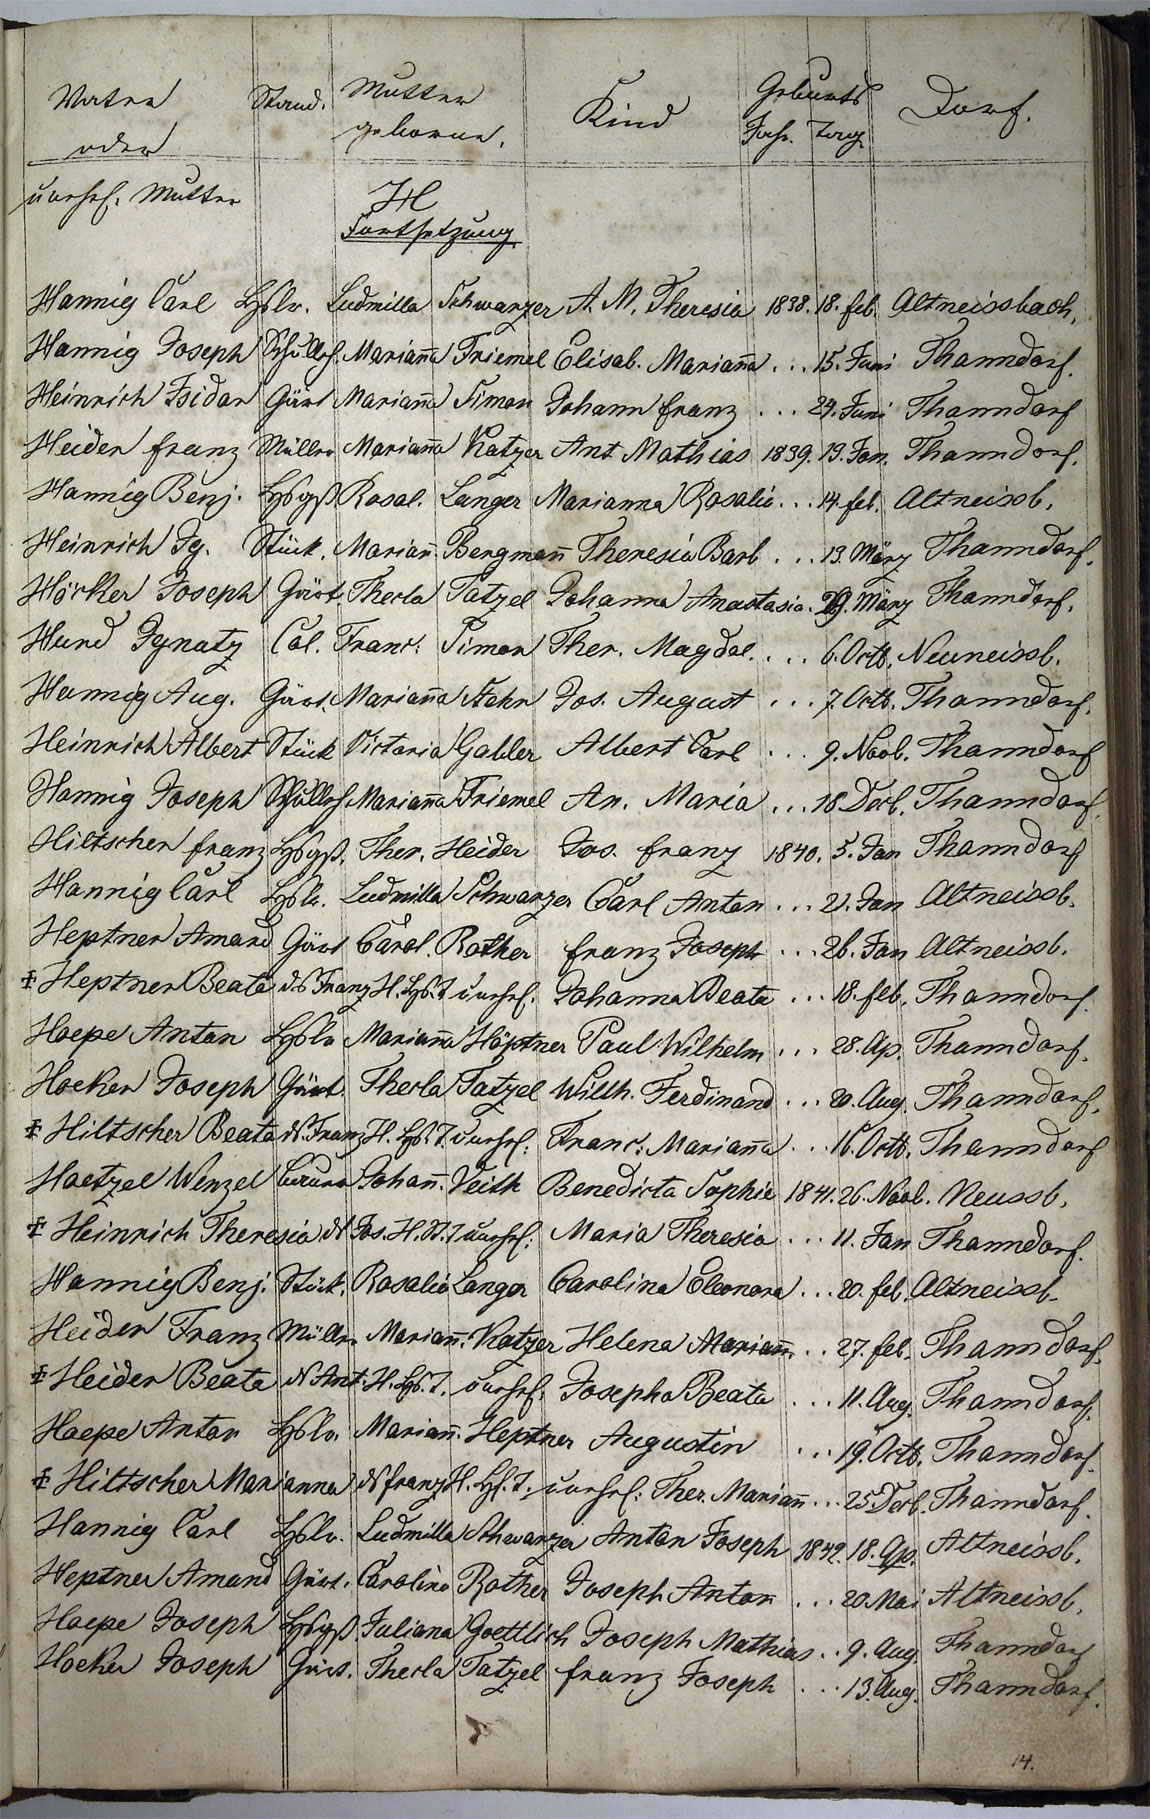 Vater Stand. Mutter Kind Geburts Dorf.
oder geborne. Jahr. Tag
unehel. Mutter
H
Fortsetzung
Hannig Carl Hslr. Ludmilla Schwarzer A. M. Theresia 1838. 18. feb. Altneissbach.
Hannig Joseph Schullh. Mariana Triemel Elisab. Mariana ... 15. Juni Thanndorf.
Heinrich Isidor Gärt Mariana Simon Johann franz ... 24. Juni Thanndorf
Heider franz Müller Mariana Katzer Ant Mathias 1839. 19. Jan. Thanndorf.
Hannig Benj. Hsgß Rosal. Langer Marianna Rosalia ... 14. feb. Altneissb.
Heinrich Ig. Stück. Mariañ Bergmañ Theresia Barb ... 13. März Thanndorf.
Höcker Joseph Gärt. Thecla Tatzel Johanna Anastasia. 29. März Thanndorf.
Hund Ignatz Col. Franc: Simon Ther. Magdal. ... 6. Octb. Neuneissb.
Hannig Aug. Gärt. Mariana Hahn Jos. August ... 7. Octb. Thanndorf.
Heinrich Albert Stück Victoria Gabler Albert Carl ... 9. Novb. Thanndorf
Hannig Joseph Schullh. Mariana Triemel An. Maria ... 18 Decb. Thanndorf.
Hiltscher franz Hsgß. Ther. Heider Jos. franz 1840. 5. Jan Thanndorf
Hannig Carl Hslr. Ludmilla Schwarzer Carl Anton ... 21. Jan Altneissb.
Heptner Amand Gärt Carol. Rother franz Joseph ... 26. Jan Altneissb.
‡ Heptner Beata ds Franz H. Hs. T unehel. Johanna Beata ... 18. feb. Thanndorf.
Hoepe Anton Hslr Mariana Höptner Paul Wilhelm ... 28. Ap. Thanndorf.
Hoeker Joseph Gärt. Thecla Tatzel Wilh. Ferdinand ... 20. Aug. Thanndorf.
‡ Hiltscher Beata ds. Franz H. Hs. T. unehel: Franc: Mariana ... 16. Octb. Thanndorf
Hoetzel Wenzel Bauer Johañ. Veith Benedicta Sophie 1841. 26. Novb. Neussb.
‡ Heinrich Theresia ds Jos. H. St. T unehel: Maria Theresia ... 11. Jan Thanndorf.
Hannig Benj. Stück. Rosalia Langer Carolina Eleonora ... 20. feb. Altneissb.
Heider Franz Müller Mariañ. Katzer Helena Mariañ. ... 27. feb. Thanndorf.
‡ Heider Beata ds Ant. H. Hs. T. unehel. Josepha Beata ... 11. Aug. Thanndorf.
Hoepe Anton Hslr. Mariañ. Heptner Augustin ... 19. Octb. Thanndorf.
‡ Hiltscher Marianna ds franz H. Hs. T. unehel: Ther. Mariañ ... 25 Decb. Thanndorf.
Hannig Carl Hslr. Ludmilla Schwarzer Anton Joseph 1842. 18. Ap. Altneissb.
Heptner Amand Gärt. Carolina Rother Joseph Anton ... 20. Mai Altneissb.
Hoepe Joseph Hsgß. Juliana Goettlich Joseph Mathias .. 9. Aug Thanndorf
Hoeker Joseph Gärt. Thecla Tatzel franz Joseph ... 13. Aug. Thanndorf.
14.